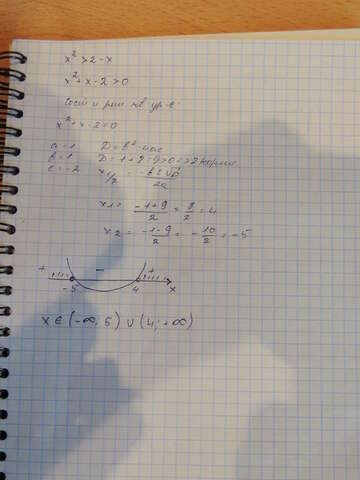 x² > 2 - x
x² + x - 2 > 0
Сост и реш кв ур-е
x² + x - 2 = 0
a = 1 D = b² - 4ac
b = 1 D = 1 + 8 = 9 > 0 => 2 корня
c = -2 x1/2 = -b ± √D / 2a
x1 = -1+9 / 2 = 8/2 = 4
x2 = -1-9 / 2 = -10/2 = -5
+ - +
-5 4 x
x ∈ (-∞; 5) ∪ (4; +∞)